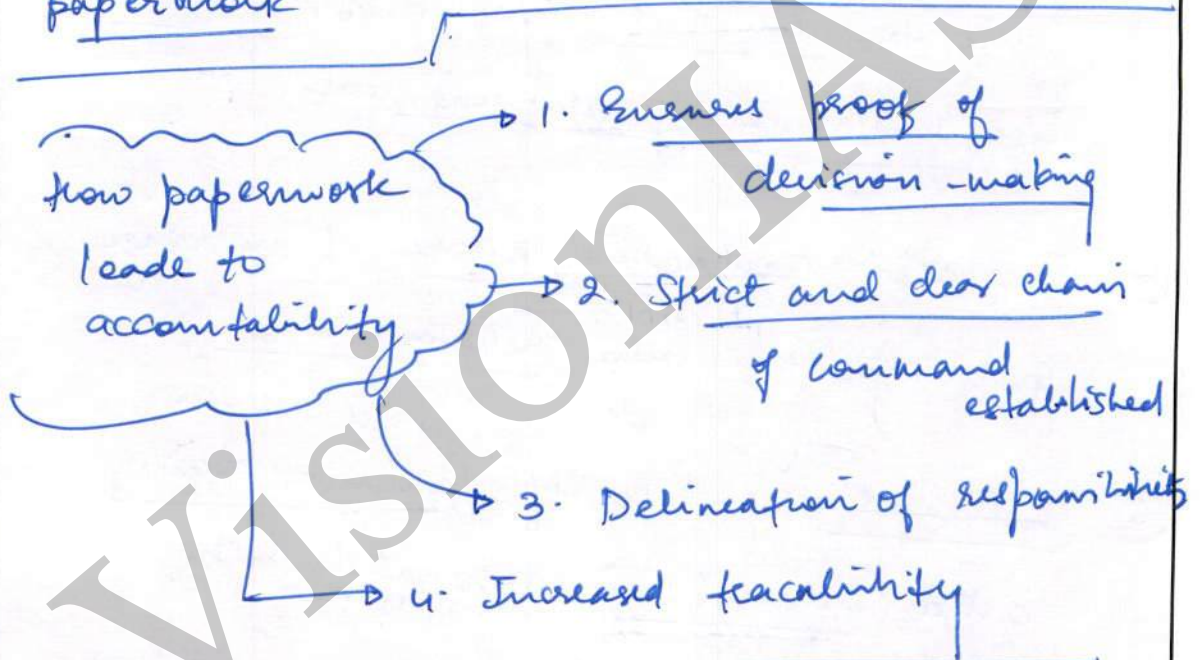 paperwork
how paperwork
leads to
accountability
1. Ensures proof of
decision-making
2. Strict and clear chain
of command
established
3. Delineation of responsibilities
4. Increased traceability
VisionIAS